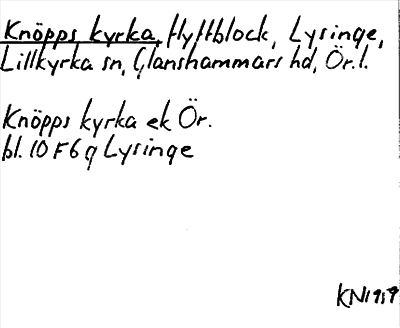 Knöpps kyrka, flyttblock, Lysinge,
Lillkyrka sn, Glanshammars hd, Ör. l.
Knöpps kyrka ek Ör.
bl. 10 F 6 g Lysinge
KN1919